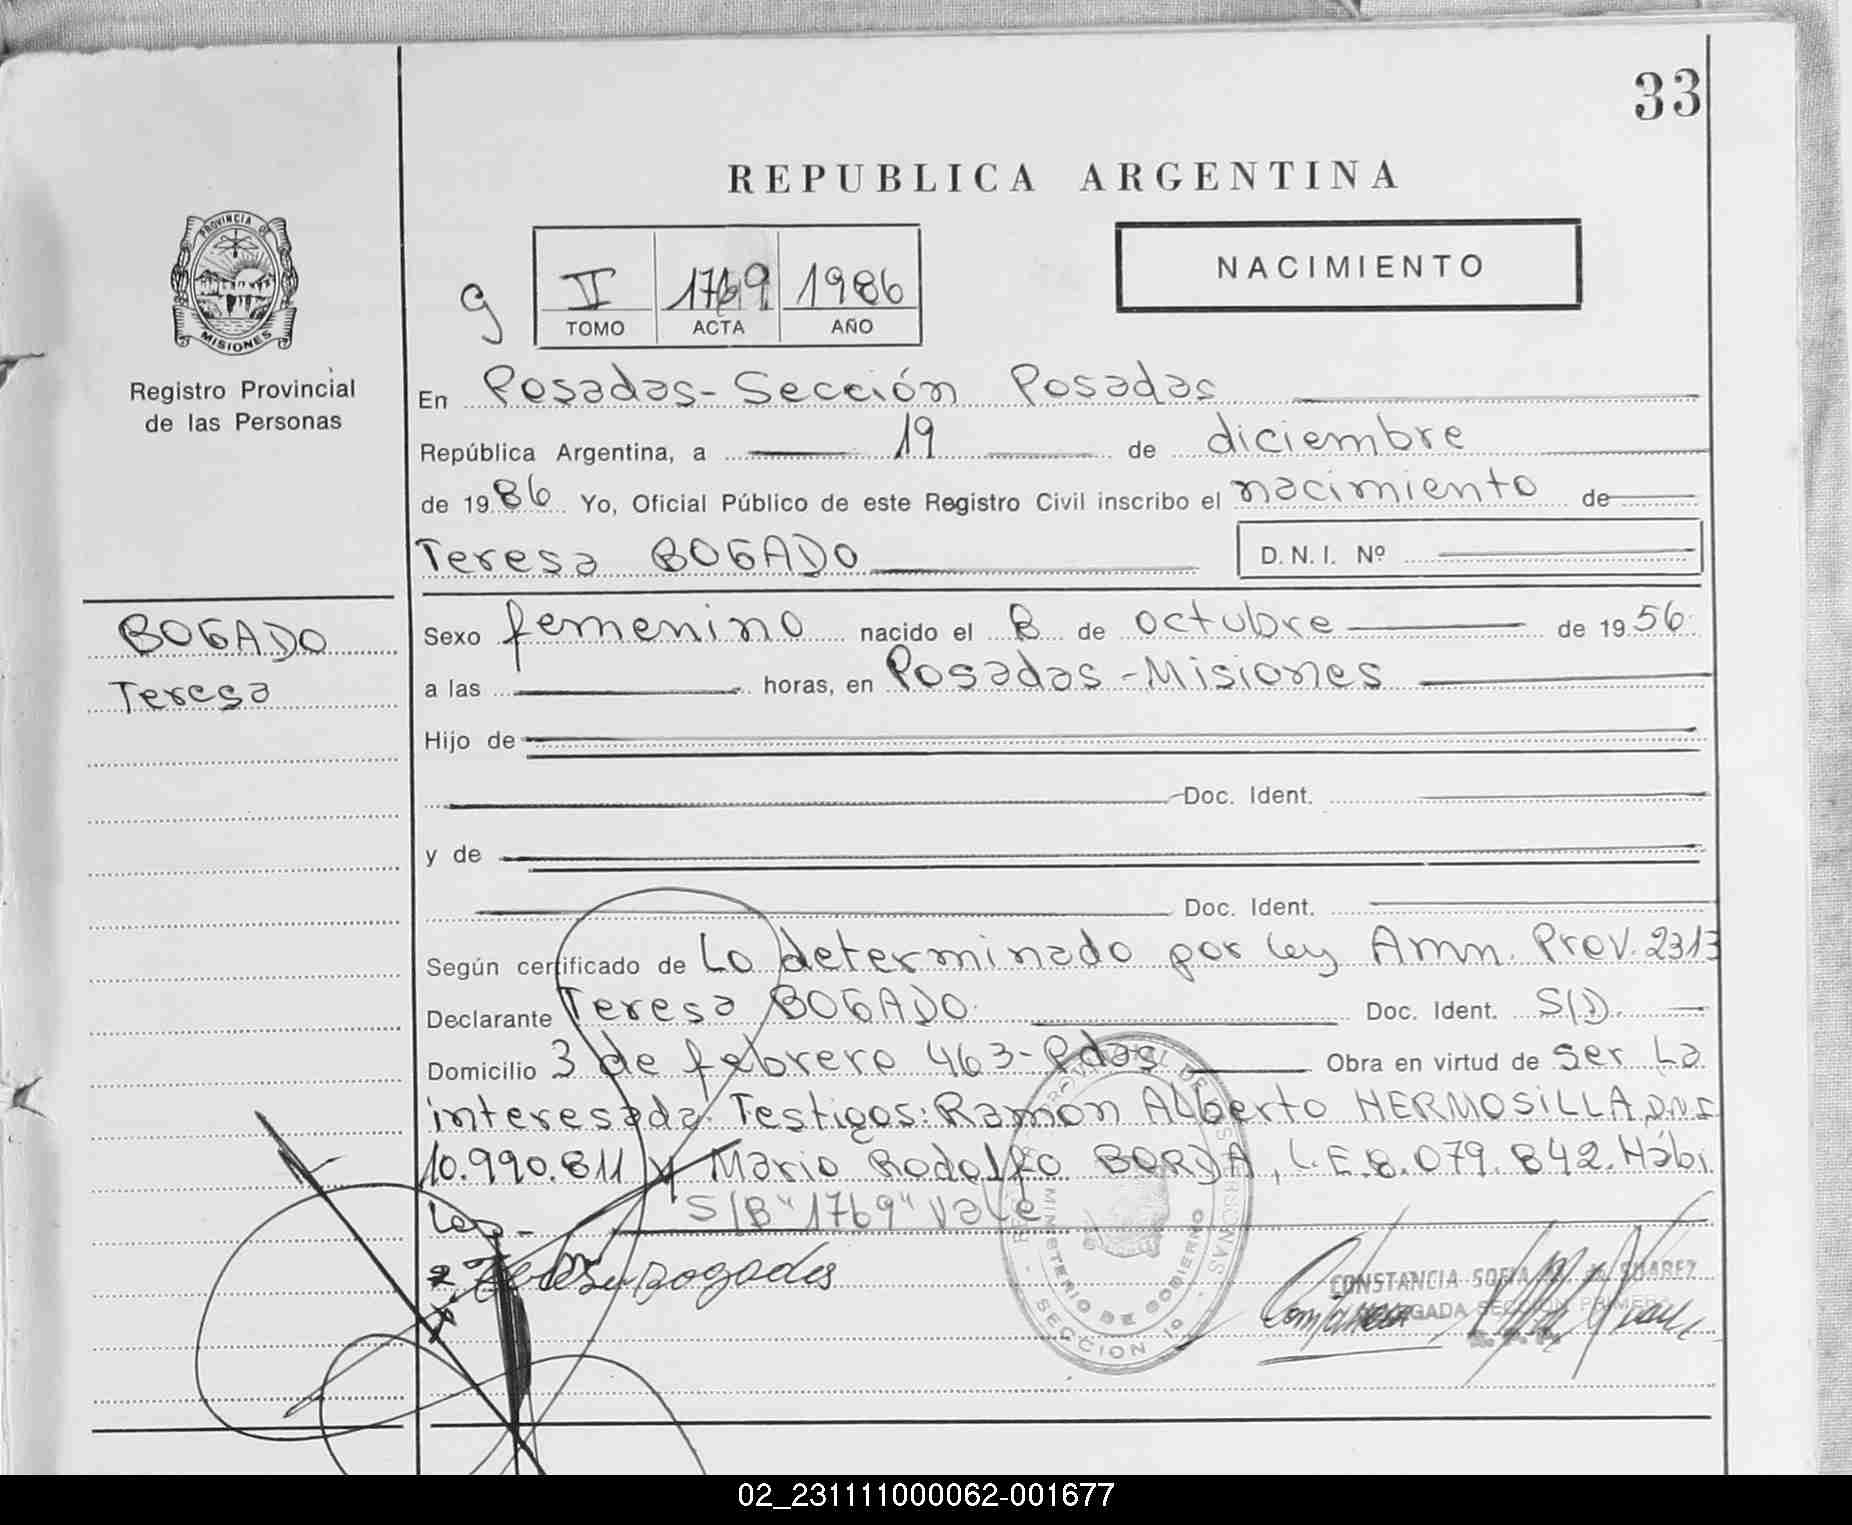 33
REPUBLICA ARGENTINA
PROVINCIA DE
MISIONES
Registro Provincial
de las Personas
g
II 1769 1986
TOMO ACTA AÑO
NACIMIENTO
En Posadas-Sección Posadas
República Argentina, a 19 de diciembre
de 1986 Yo, Oficial Público de este Registro Civil inscribo el nacimiento de
Teresa BOGADO D.N.I. Nº
BOGADO
Teresa
Sexo femenino nacido el 8 de octubre de 1956
a las horas, en Posadas-Misiones
Hijo de
Doc. Ident.
y de
Doc. Ident.
Según certificado de Lo determinado por ley Amn. Prov. 2313
Declarante Teresa BOGADO. Doc. Ident. S/D.
Domicilio 3 de febrero 463-Pdas Obra en virtud de ser La
interesada. Testigos: Ramon Alberto HERMOSILLA, D.N.I.
10.990.811 y Mario Rodolfo BORJA, L.E. 8.079.842. Hábi
les.-
S/B "1769" Vale
MINISTERIO DE GOBIERNO
SECCION 1º
CONSTANCIA SOFIA
SUAREZ
SECCION PRIMERA
02_231111000062-001677